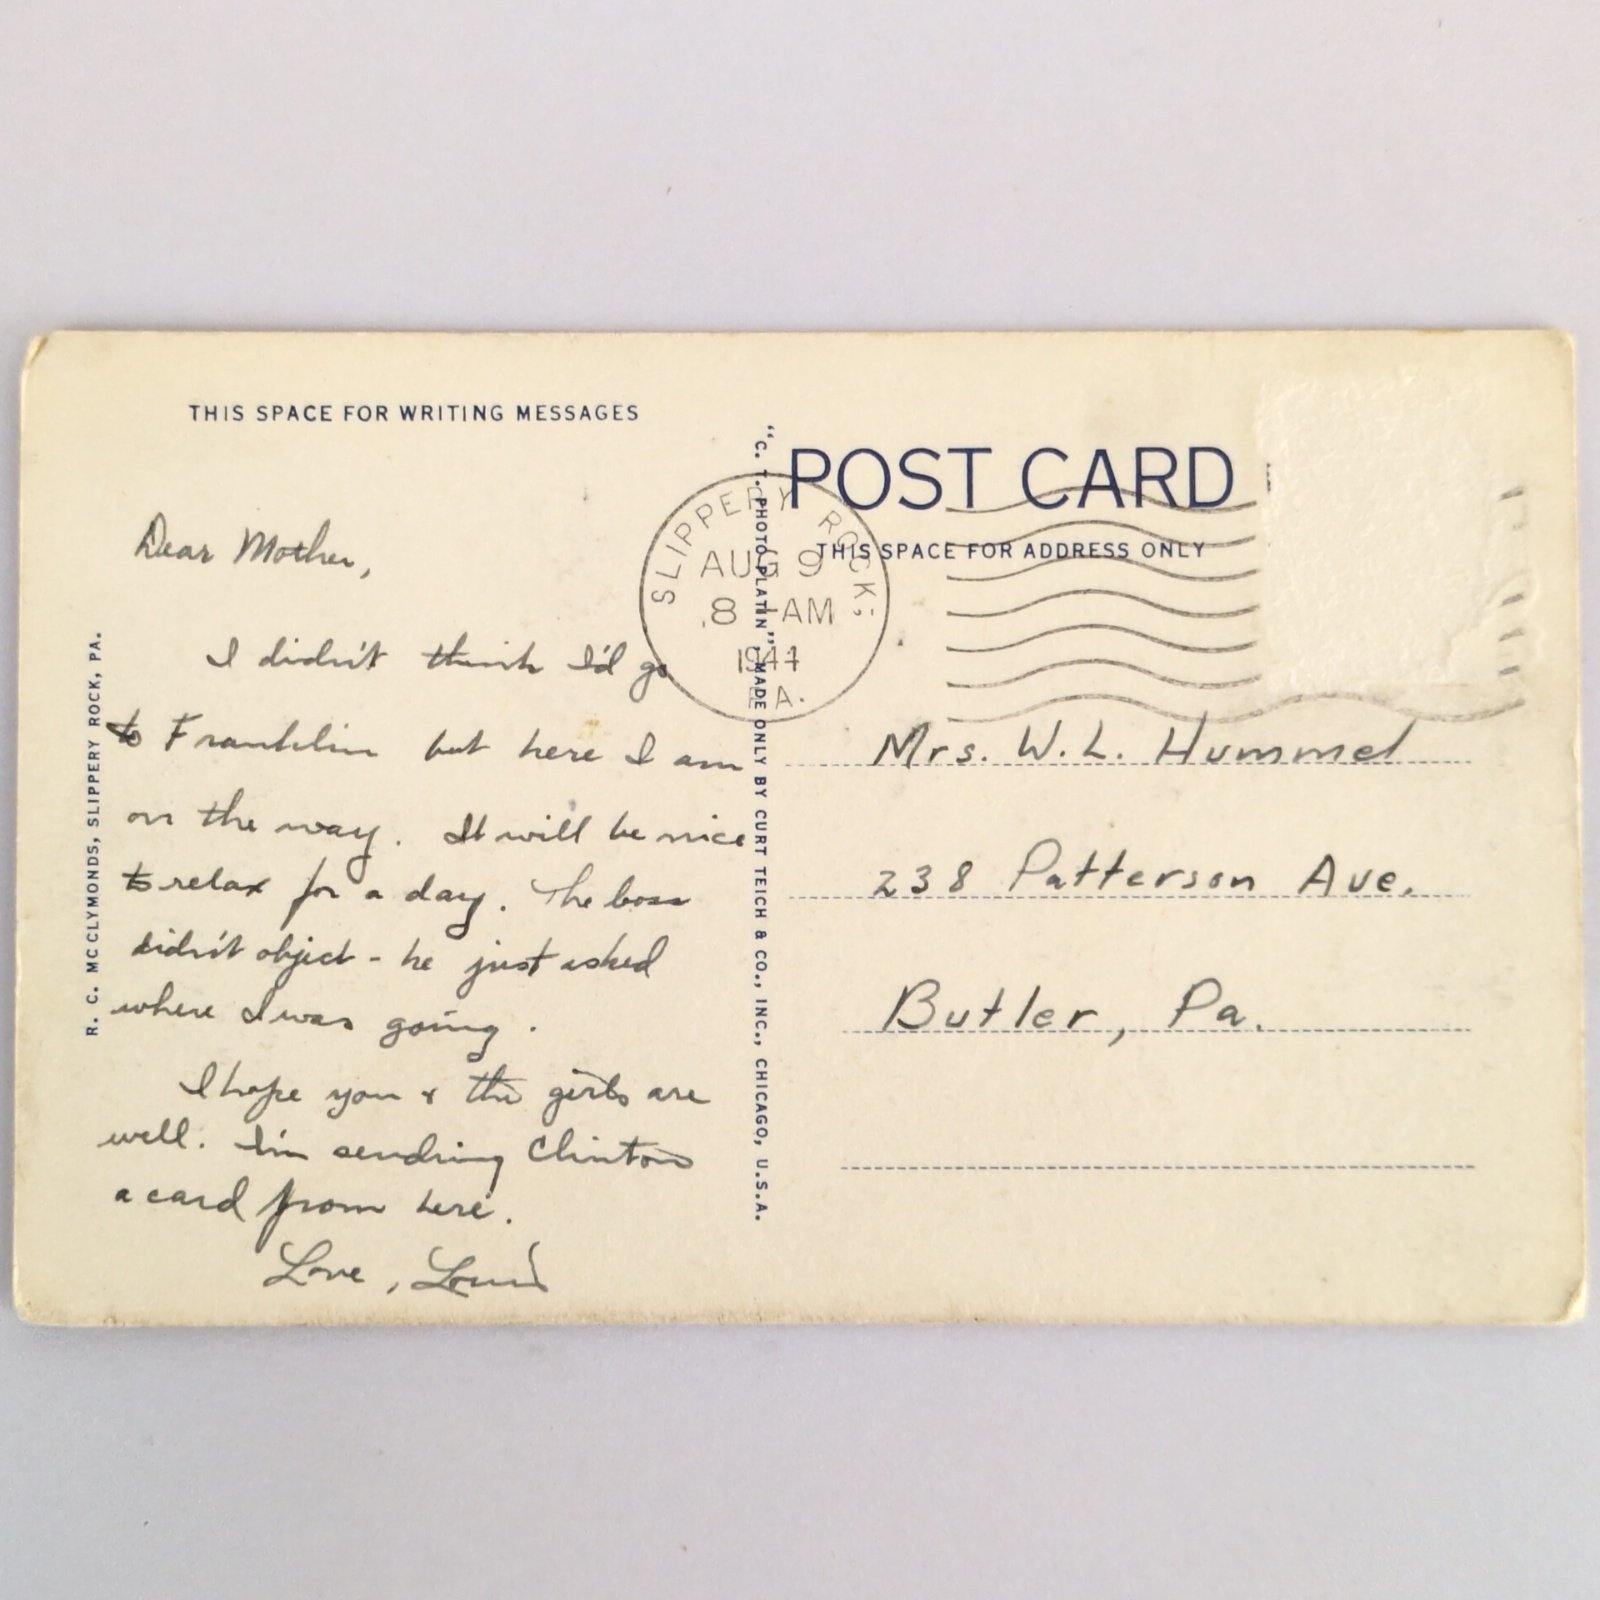 THIS SPACE FOR WRITING MESSAGES
Dear Mother,
I didn't think I'd go
to Franklin but here I am
on the way. It will be nice
to relax for a day. The boss
didn't object - he just asked
where I was going.
I hope you & the girls are
well. I'm sending Clinton
a card from here.
Love,
R. C. MC CLYMONDS, SLIPPERY ROCK, PA.
"C. T. PHOTO-PLATIN" MADE ONLY BY CURT TEICH & CO., INC., CHICAGO, U.S.A.
POST CARD
THIS SPACE FOR ADDRESS ONLY
SLIPPERY ROCK,
AUG 9
8 - AM
1944
PA.
Mrs. W. L. Hummel
238 Patterson Ave.
Butler, Pa.